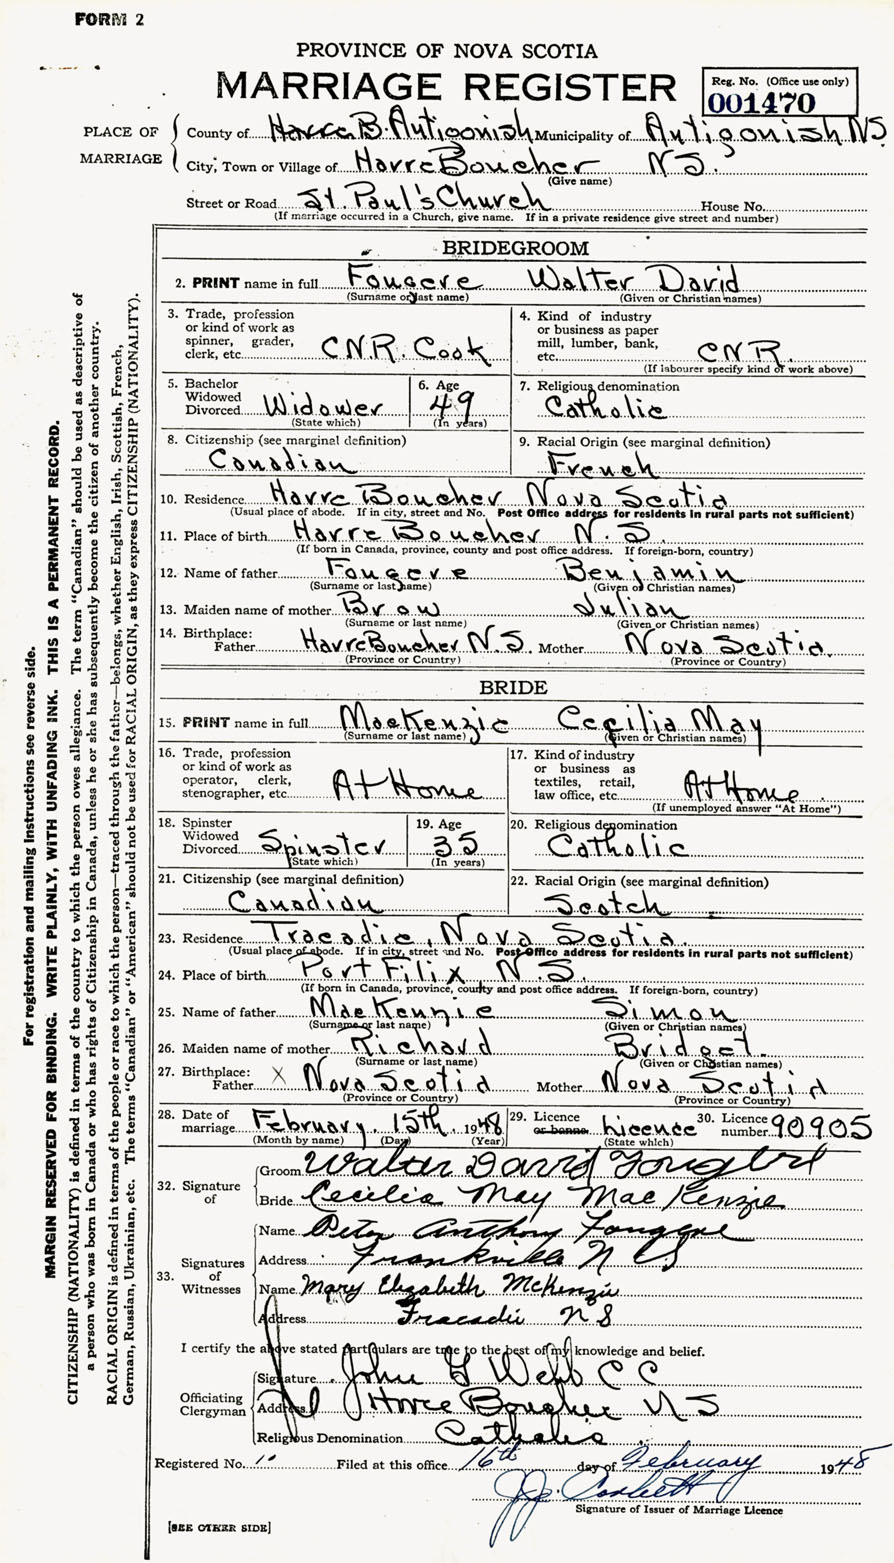 FORM 2
PROVINCE OF NOVA SCOTIA
MARRIAGE REGISTER
Reg. No. (Office use only)
001470
PLACE OF MARRIAGE
County of Havre B. Antigonish Municipality of Antigonish NS.
City, Town or Village of Havre Boucher N.S.
(Give name)
Street or Road St. Paul's Church House No.
(If marriage occurred in a Church, give name. If in a private residence give street and number)
BRIDEGROOM
2. PRINT name in full Fougere Walter David
(Surname or last name) (Given or Christian names)
3. Trade, profession or kind of work as spinner, grader, clerk, etc. C.N.R. Cook
4. Kind of industry or business as paper mill, lumber, bank, etc. CNR.
(If labourer specify kind of work above)
5. Bachelor Widowed Divorced Widower
(State which)
6. Age 49
(In years)
7. Religious denomination
Catholic
8. Citizenship (see marginal definition)
Canadian
9. Racial Origin (see marginal definition)
French
10. Residence Havre Boucher Nova Scotia
(Usual place of abode. If in city, street and No. Post Office address for residents in rural parts not sufficient)
11. Place of birth Havre Boucher N.S.
(If born in Canada, province, county and post office address. If foreign-born, country)
12. Name of father Fougere Benjamin
(Surname or last name) (Given or Christian names)
13. Maiden name of mother Brow Julian
(Surname or last name) (Given or Christian names)
14. Birthplace: Father Havre Boucher N.S. Mother Nova Scotia.
(Province or Country) (Province or Country)
BRIDE
15. PRINT name in full MacKenzie Cecilia May
(Surname or last name) (Given or Christian names)
16. Trade, profession or kind of work as operator, clerk, stenographer, etc. At Home
17. Kind of industry or business as textiles, retail, law office, etc. At Home.
(If unemployed answer "At Home")
18. Spinster Widowed Divorced Spinster
(State which)
19. Age 35
(In years)
20. Religious denomination
Catholic
21. Citizenship (see marginal definition)
Canadian
22. Racial Origin (see marginal definition)
Scotch
23. Residence Tracadie, Nova Scotia.
(Usual place of abode. If in city, street and No. Post Office address for residents in rural parts not sufficient)
24. Place of birth Port Filix N.S.
(If born in Canada, province, county and post office address. If foreign-born, country)
25. Name of father MacKenzie Simon
(Surname or last name) (Given or Christian names)
26. Maiden name of mother Richard Bridget.
(Surname or last name) (Given or Christian names)
27. Birthplace: Father X Nova Scotia Mother Nova Scotia
(Province or Country) (Province or Country)
28. Date of marriage February. 15th. 1948
(Month by name) (Day) (Year)
29. Licence or banns Licence
(State which)
30. Licence number 90905
32. Signature of
Groom Walter David Fougere
Bride Cecilia May MacKenzie
33. Signatures of Witnesses
Name Peter Anthony Fougere
Address Frankville N S
Name Mary Elizabeth McKenzie
Address Tracadie N S
I certify the above stated particulars are true to the best of my knowledge and belief.
Officiating Clergyman
Signature John G Webb C C
Address Havre Boucher N S
Religious Denomination Catholic
Registered No. Filed at this office 16th day of February 1948
J.J. Corbett
Signature of Issuer of Marriage Licence
[SEE OTHER SIDE]
For registration and mailing instructions see reverse side.
MARGIN RESERVED FOR BINDING. WRITE PLAINLY, WITH UNFADING INK. THIS IS A PERMANENT RECORD.
CITIZENSHIP (NATIONALITY) is defined in terms of the country to which the person owes allegiance. The term "Canadian" should be used as descriptive of
a person who was born in Canada or who has rights of Citizenship in Canada, unless he or she has subsequently become the citizen of another country.
RACIAL ORIGIN is defined in terms of the people or race to which the person—traced through the father—belongs, whether English, Irish, Scottish, French,
German, Russian, Ukrainian, etc. The terms "Canadian" or "American" should not be used for RACIAL ORIGIN, as they express CITIZENSHIP (NATIONALITY).